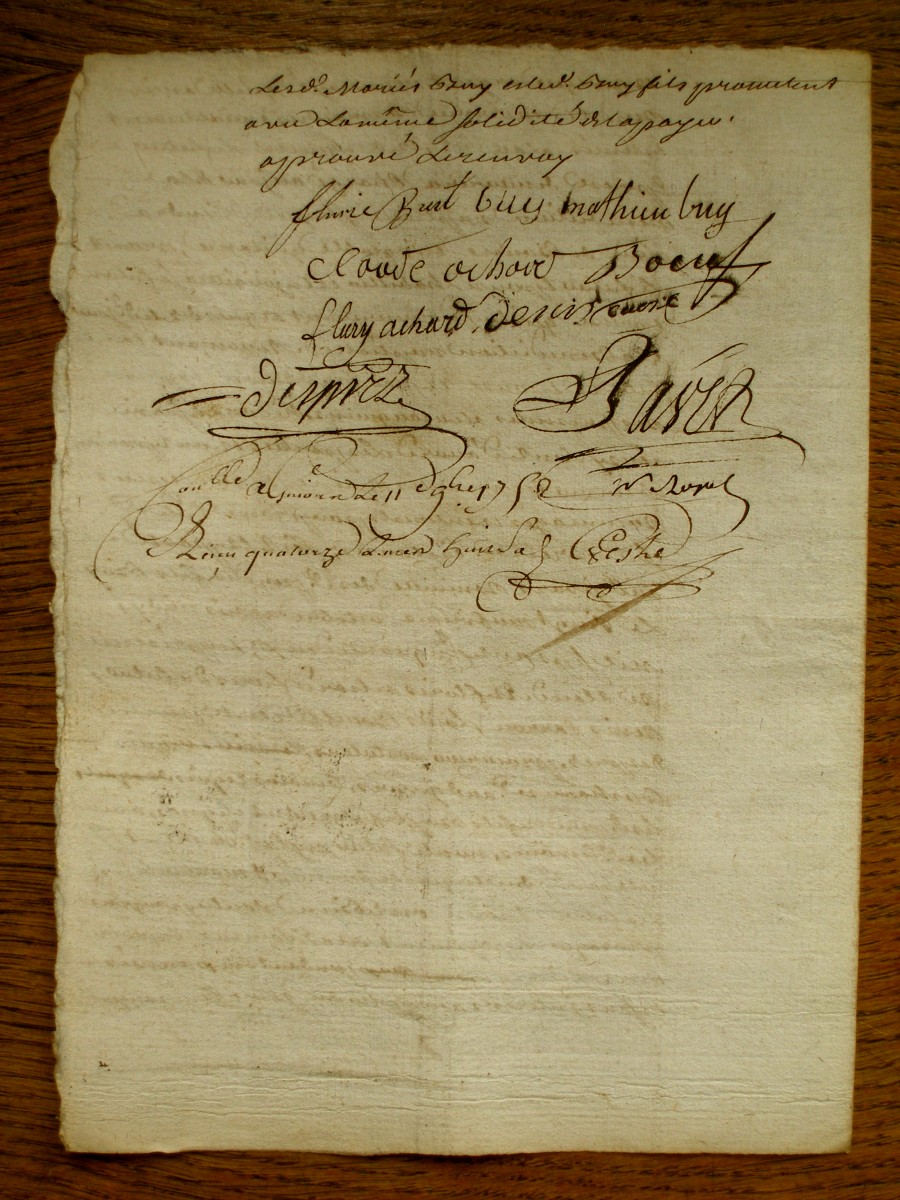 Lesd. Mariés Buy et led. Buy fils promettent
avec la même solidité de la payer.
aprouvé le renvoy
flurie Burt buy mathieu buy
Claude achard Boeuf
flury achard. Denis
Desprez Javen
Conllé a le 11 9bre 1752 Nre Royal
Reçu quatorze livres huit sols